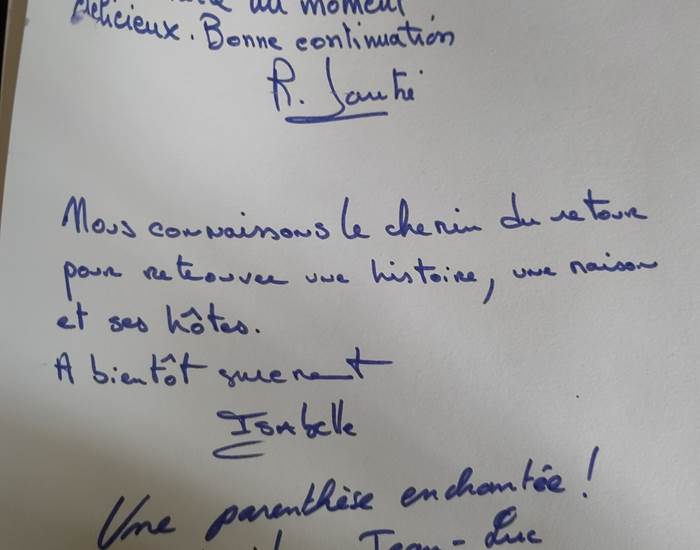 au moment
délicieux. Bonne continuation
R.
Nous connaissons le chemin du retour
pour retrouver une histoire, une maison
et ses hôtes.
A bientôt surement
Isabelle
Une parenthèse enchantée !
Jean-Luc